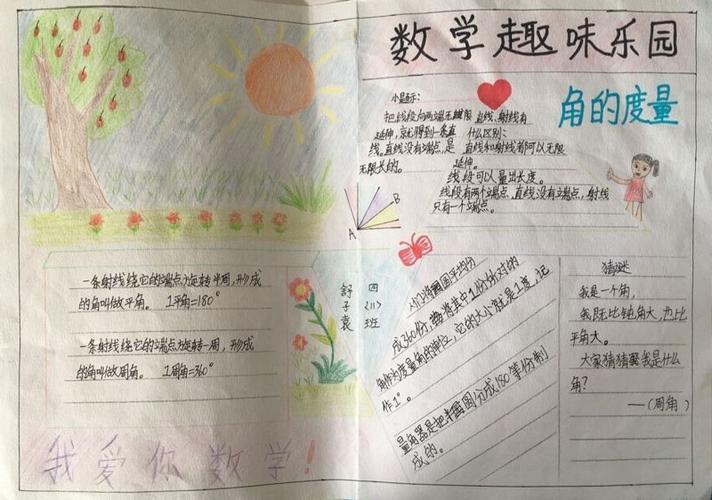 数学趣味乐园
角的度量
小提示:
把线段向两端无限
延伸,就得到一条直
线。直线没有端点,是
无限长的。
直线、射线有
什么区别:
直线和射线都可以无限
延伸。
线段可以量出长度。
线段有两个端点、直线没有端点,射线
只有一个端点。
A
B
一条射线绕它的端点旋转半周,形成
的角叫做平角。 1平角=180°
一条射线绕它的端点旋转一周,形成
的角叫做周角。 1周角=360°
四
(11)
班
舒
子
袁
圆平均分
成360份,将其中1份所对的
角作为度量角的单位,它的大小就是1度,记
作1°。
量角器是把半圆分成180等份制
成的。
猜谜
我是一个角,
我既比钝角大,也比
平角大。
大家猜猜我是什么
角?
——(周角)
我爱你数学!